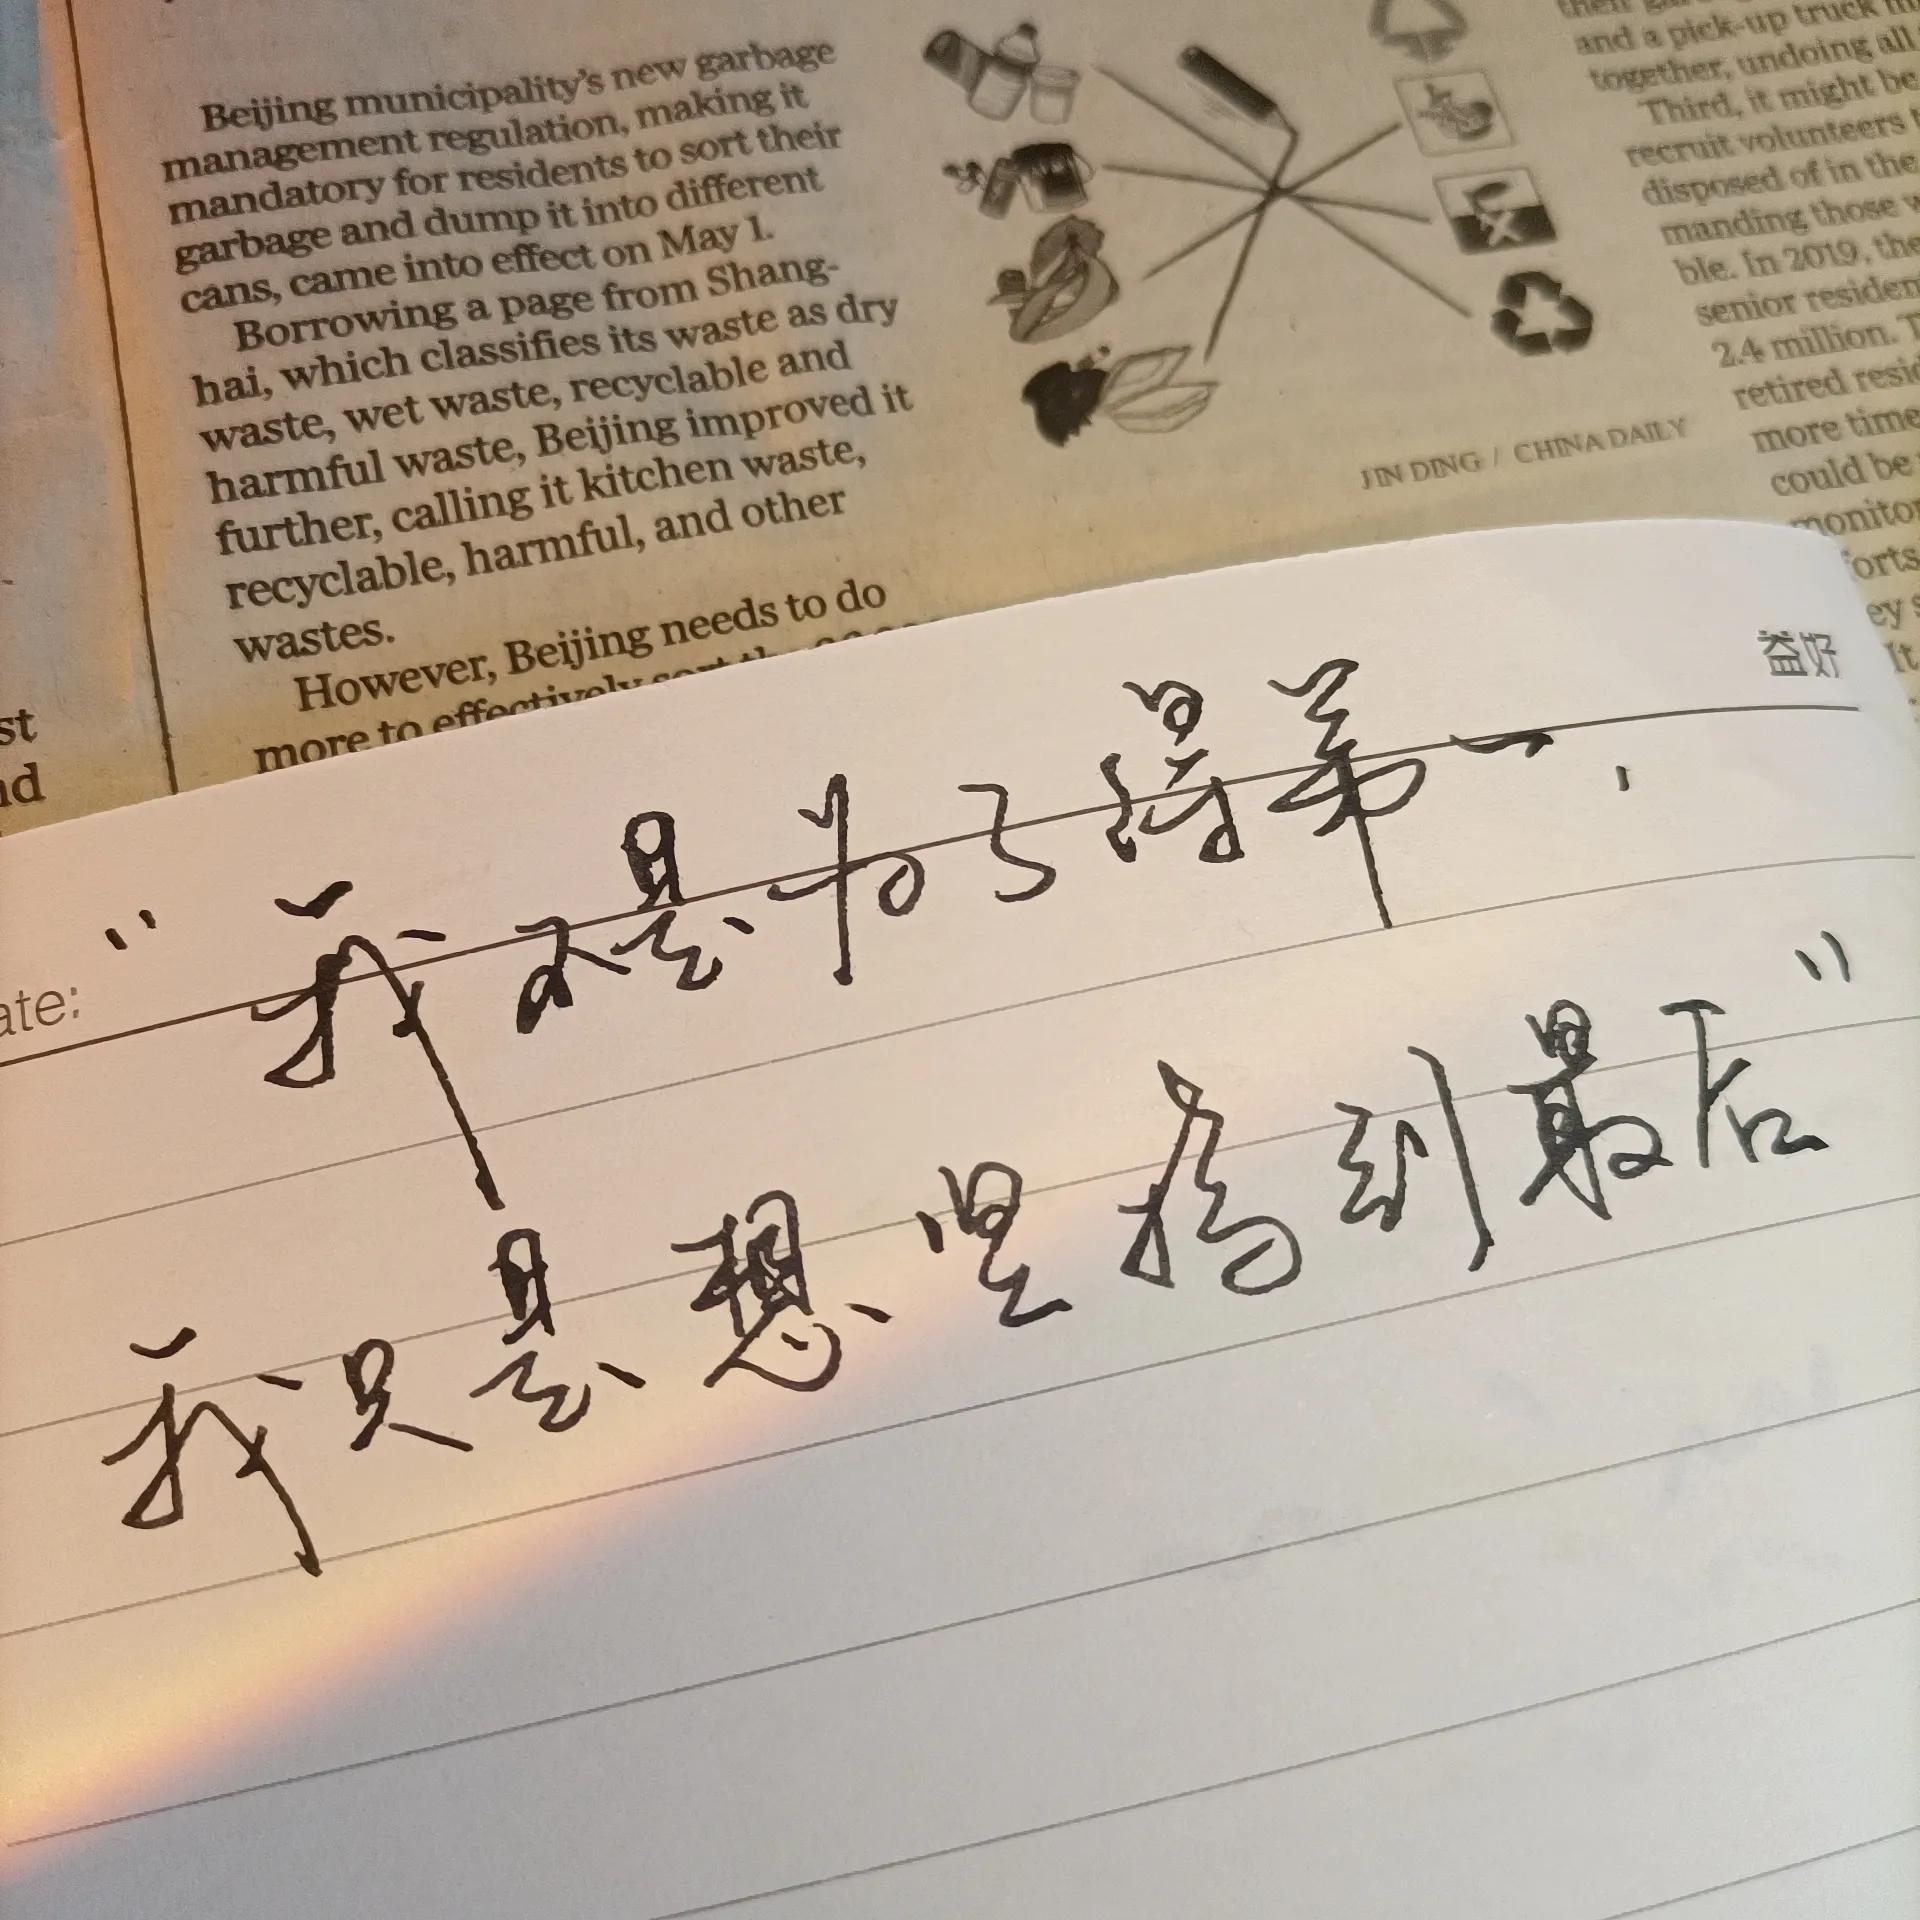 Beijing municipality's new garbage
management regulation, making it
mandatory for residents to sort their
garbage and dump it into different
cans, came into effect on May 1.
Borrowing a page from Shang-
hai, which classifies its waste as dry
waste, wet waste, recyclable and
harmful waste, Beijing improved it
further, calling it kitchen waste,
recyclable, harmful, and other
wastes.
However, Beijing needs to do
more to effectively sort
JIN DING / CHINA DAILY
and a pick-up truck
together, undoing all
Third, it might be
recruit volunteers
disposed of in the
manding those
ble. In 2019, the
senior residen
2.4 million.
retired resid
more time
could be
monitor
益好
ate:
“我不是为了得第一，
我只是想坚持到最后”